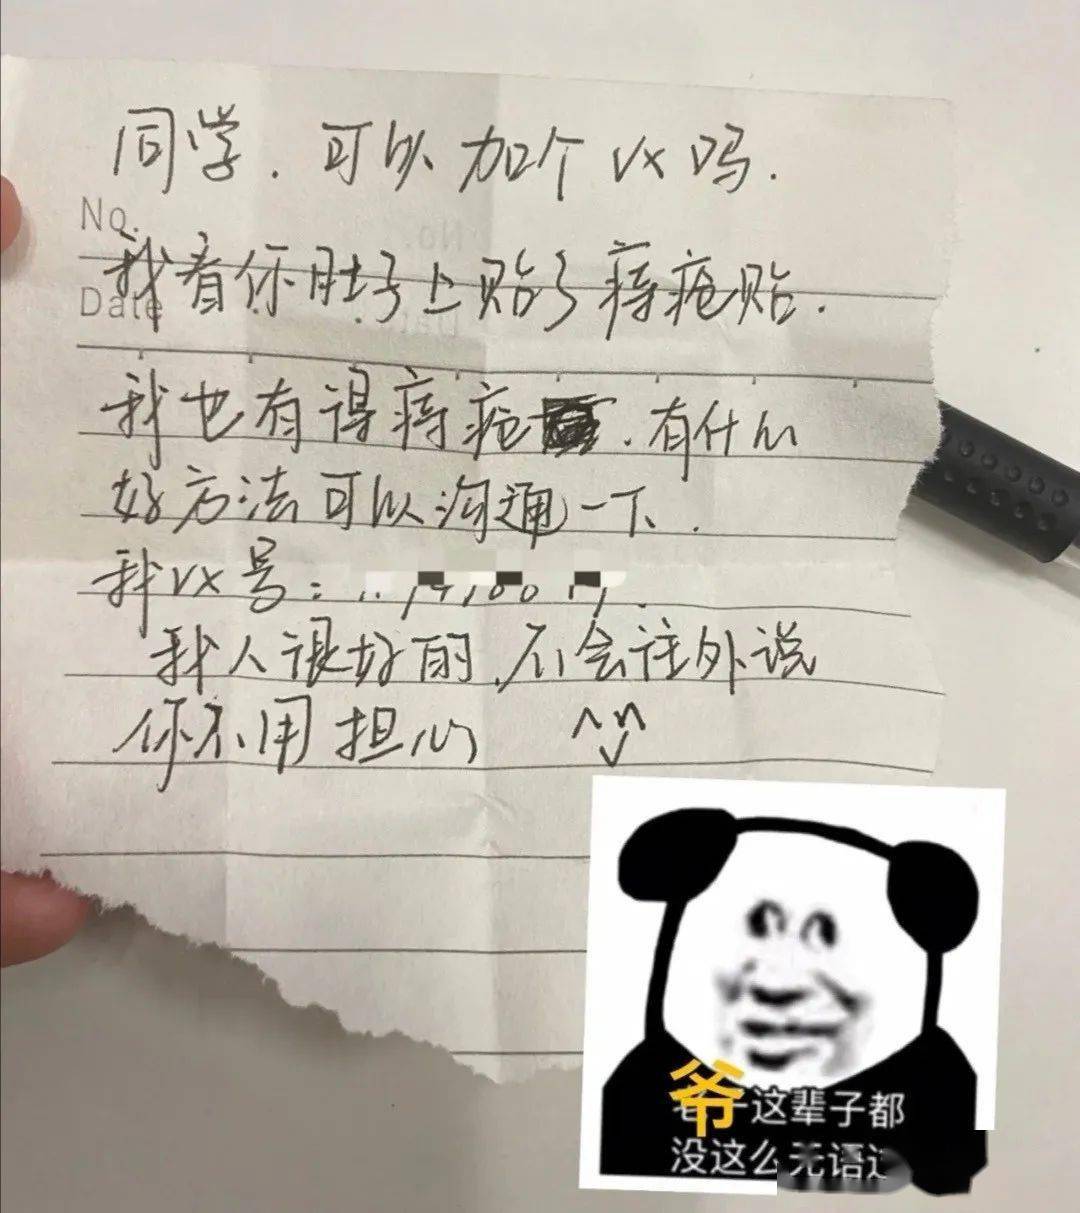 同学.可以加个vx吗.
No.
我看你肚子上贴了痔疮贴.
Date
我也有得痔疮.有什么
好方法可以沟通一下.
我vx号:
我人很好的,不会往外说
你不用担心 ^v^
爷这辈子都
没这么无语过